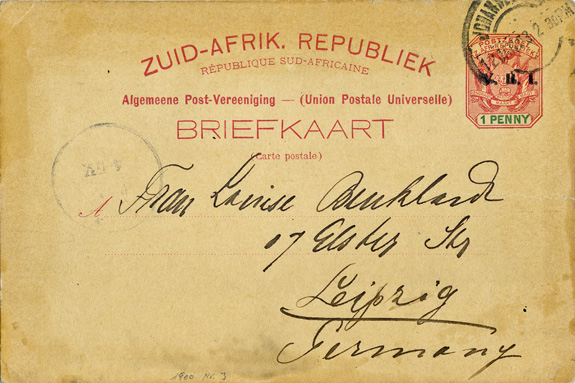 ZUID-AFRIK. REPUBLIEK
RÉPUBLIQUE SUD-AFRICAINE
Algemeene Post-Vereeniging — (Union Postale Universelle)
BRIEFKAART
(Carte postale)
V. R. I.
1 PENNY
Frau Louise
Elster Str
Leipzig
Germany
1900